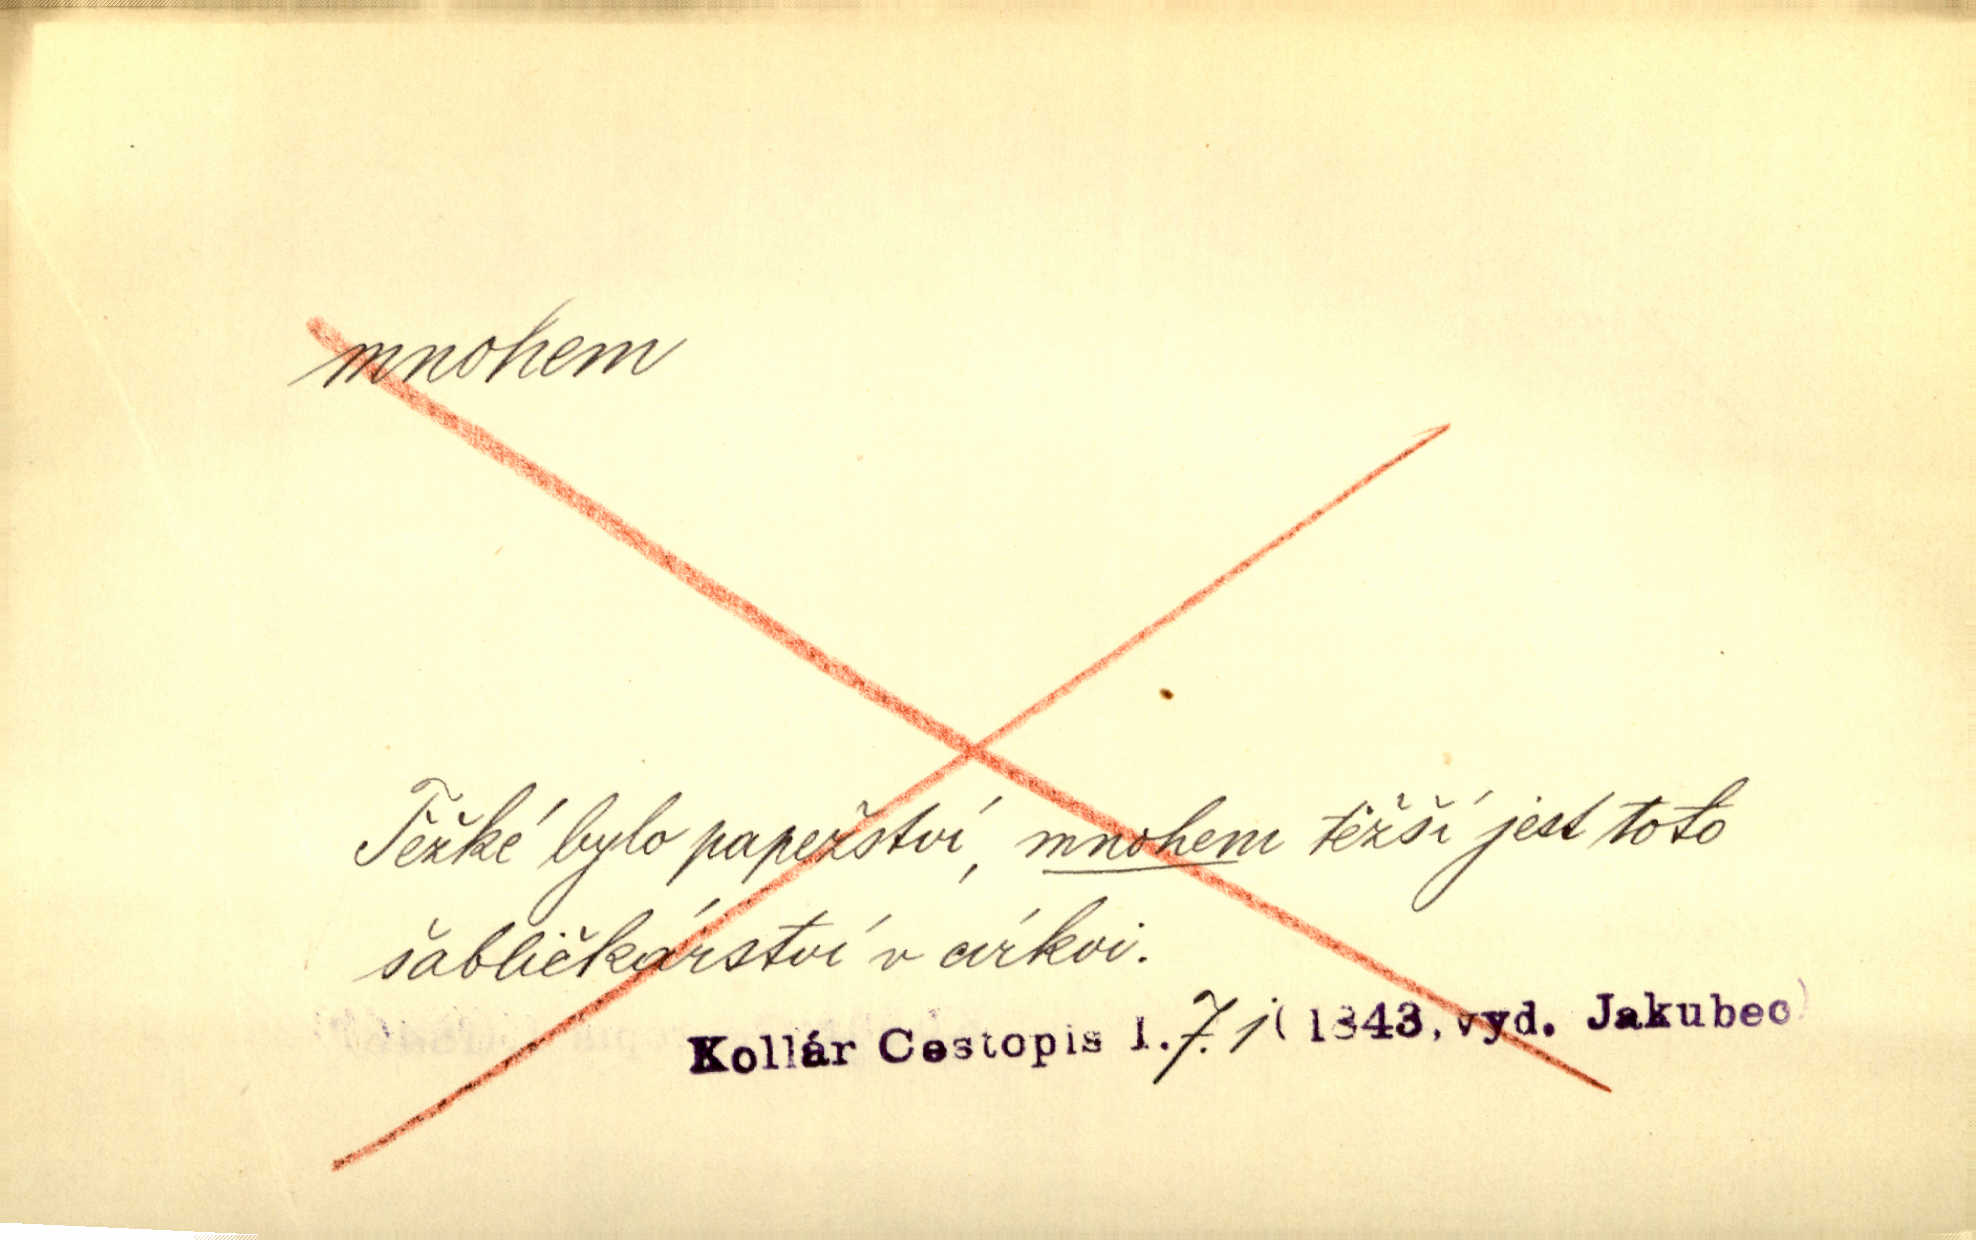 mnohem
Těžké bylo papežství, mnohem těžší jest toto
šabličkářství v církvi.
Kollár Cestopis I. 7. (1843, vyd. Jakubec)